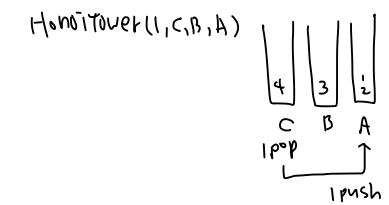 HanoiTower(1,C,B,A)
4 3 1
2
C B A
1pop
1push